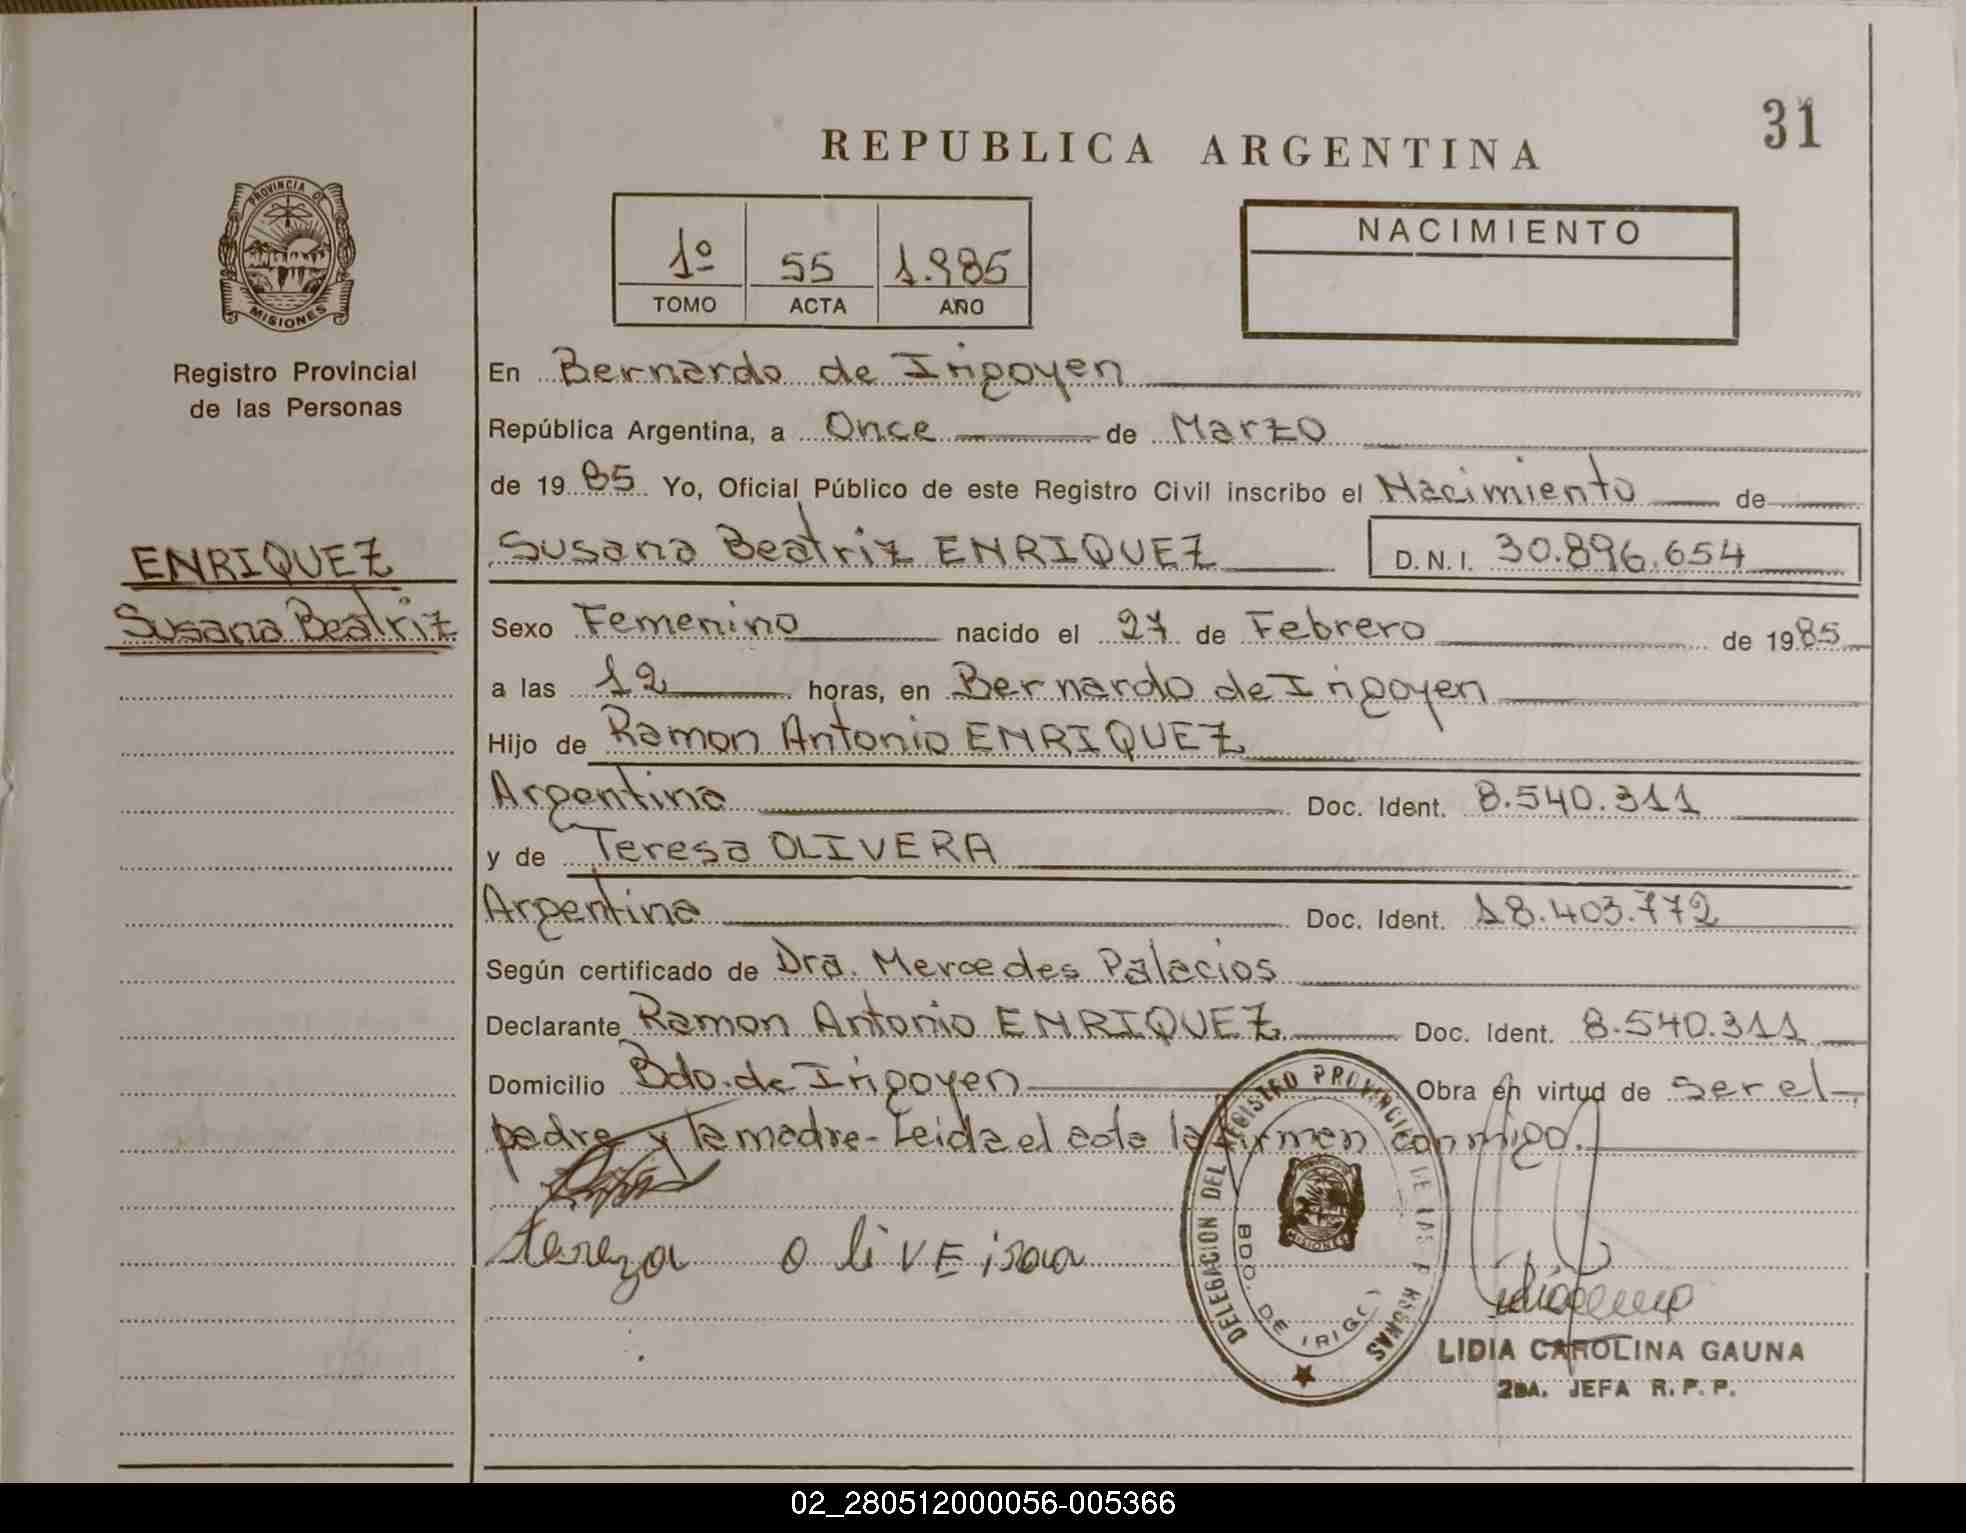 31
REPUBLICA ARGENTINA
PROVINCIA DE
MISIONES
1º 55 1.985
TOMO ACTA AÑO
NACIMIENTO
Registro Provincial
de las Personas
ENRIQUEZ
Susana Beatriz
En Bernardo de Irigoyen
República Argentina, a Once de Marzo
de 1985 Yo, Oficial Público de este Registro Civil inscribo el Nacimiento de
Susana Beatriz ENRIQUEZ D.N.I. 30.896.654
Sexo Femenino nacido el 27 de Febrero de 1985
a las 12 horas, en Bernardo de Irigoyen
Hijo de Ramon Antonio ENRIQUEZ
Argentino Doc. Ident. 8.540.311
y de Teresa OLIVERA
Argentina Doc. Ident. 18.403.772
Según certificado de Dra. Mercedes Palacios
Declarante Ramon Antonio ENRIQUEZ Doc. Ident. 8.540.311
Domicilio Bdo. de Irigoyen Obra en virtud de ser el
padre y la madre - Leida el acta la firman conmigo.
tereza oliveira
DELEGACION DEL REGISTRO PROVINCIAL DE LAS PERSONAS
BDO. DE IRIGO
MISIONES
LIDIA CAROLINA GAUNA
2DA. JEFA R.P.P.
02_280512000056-005366